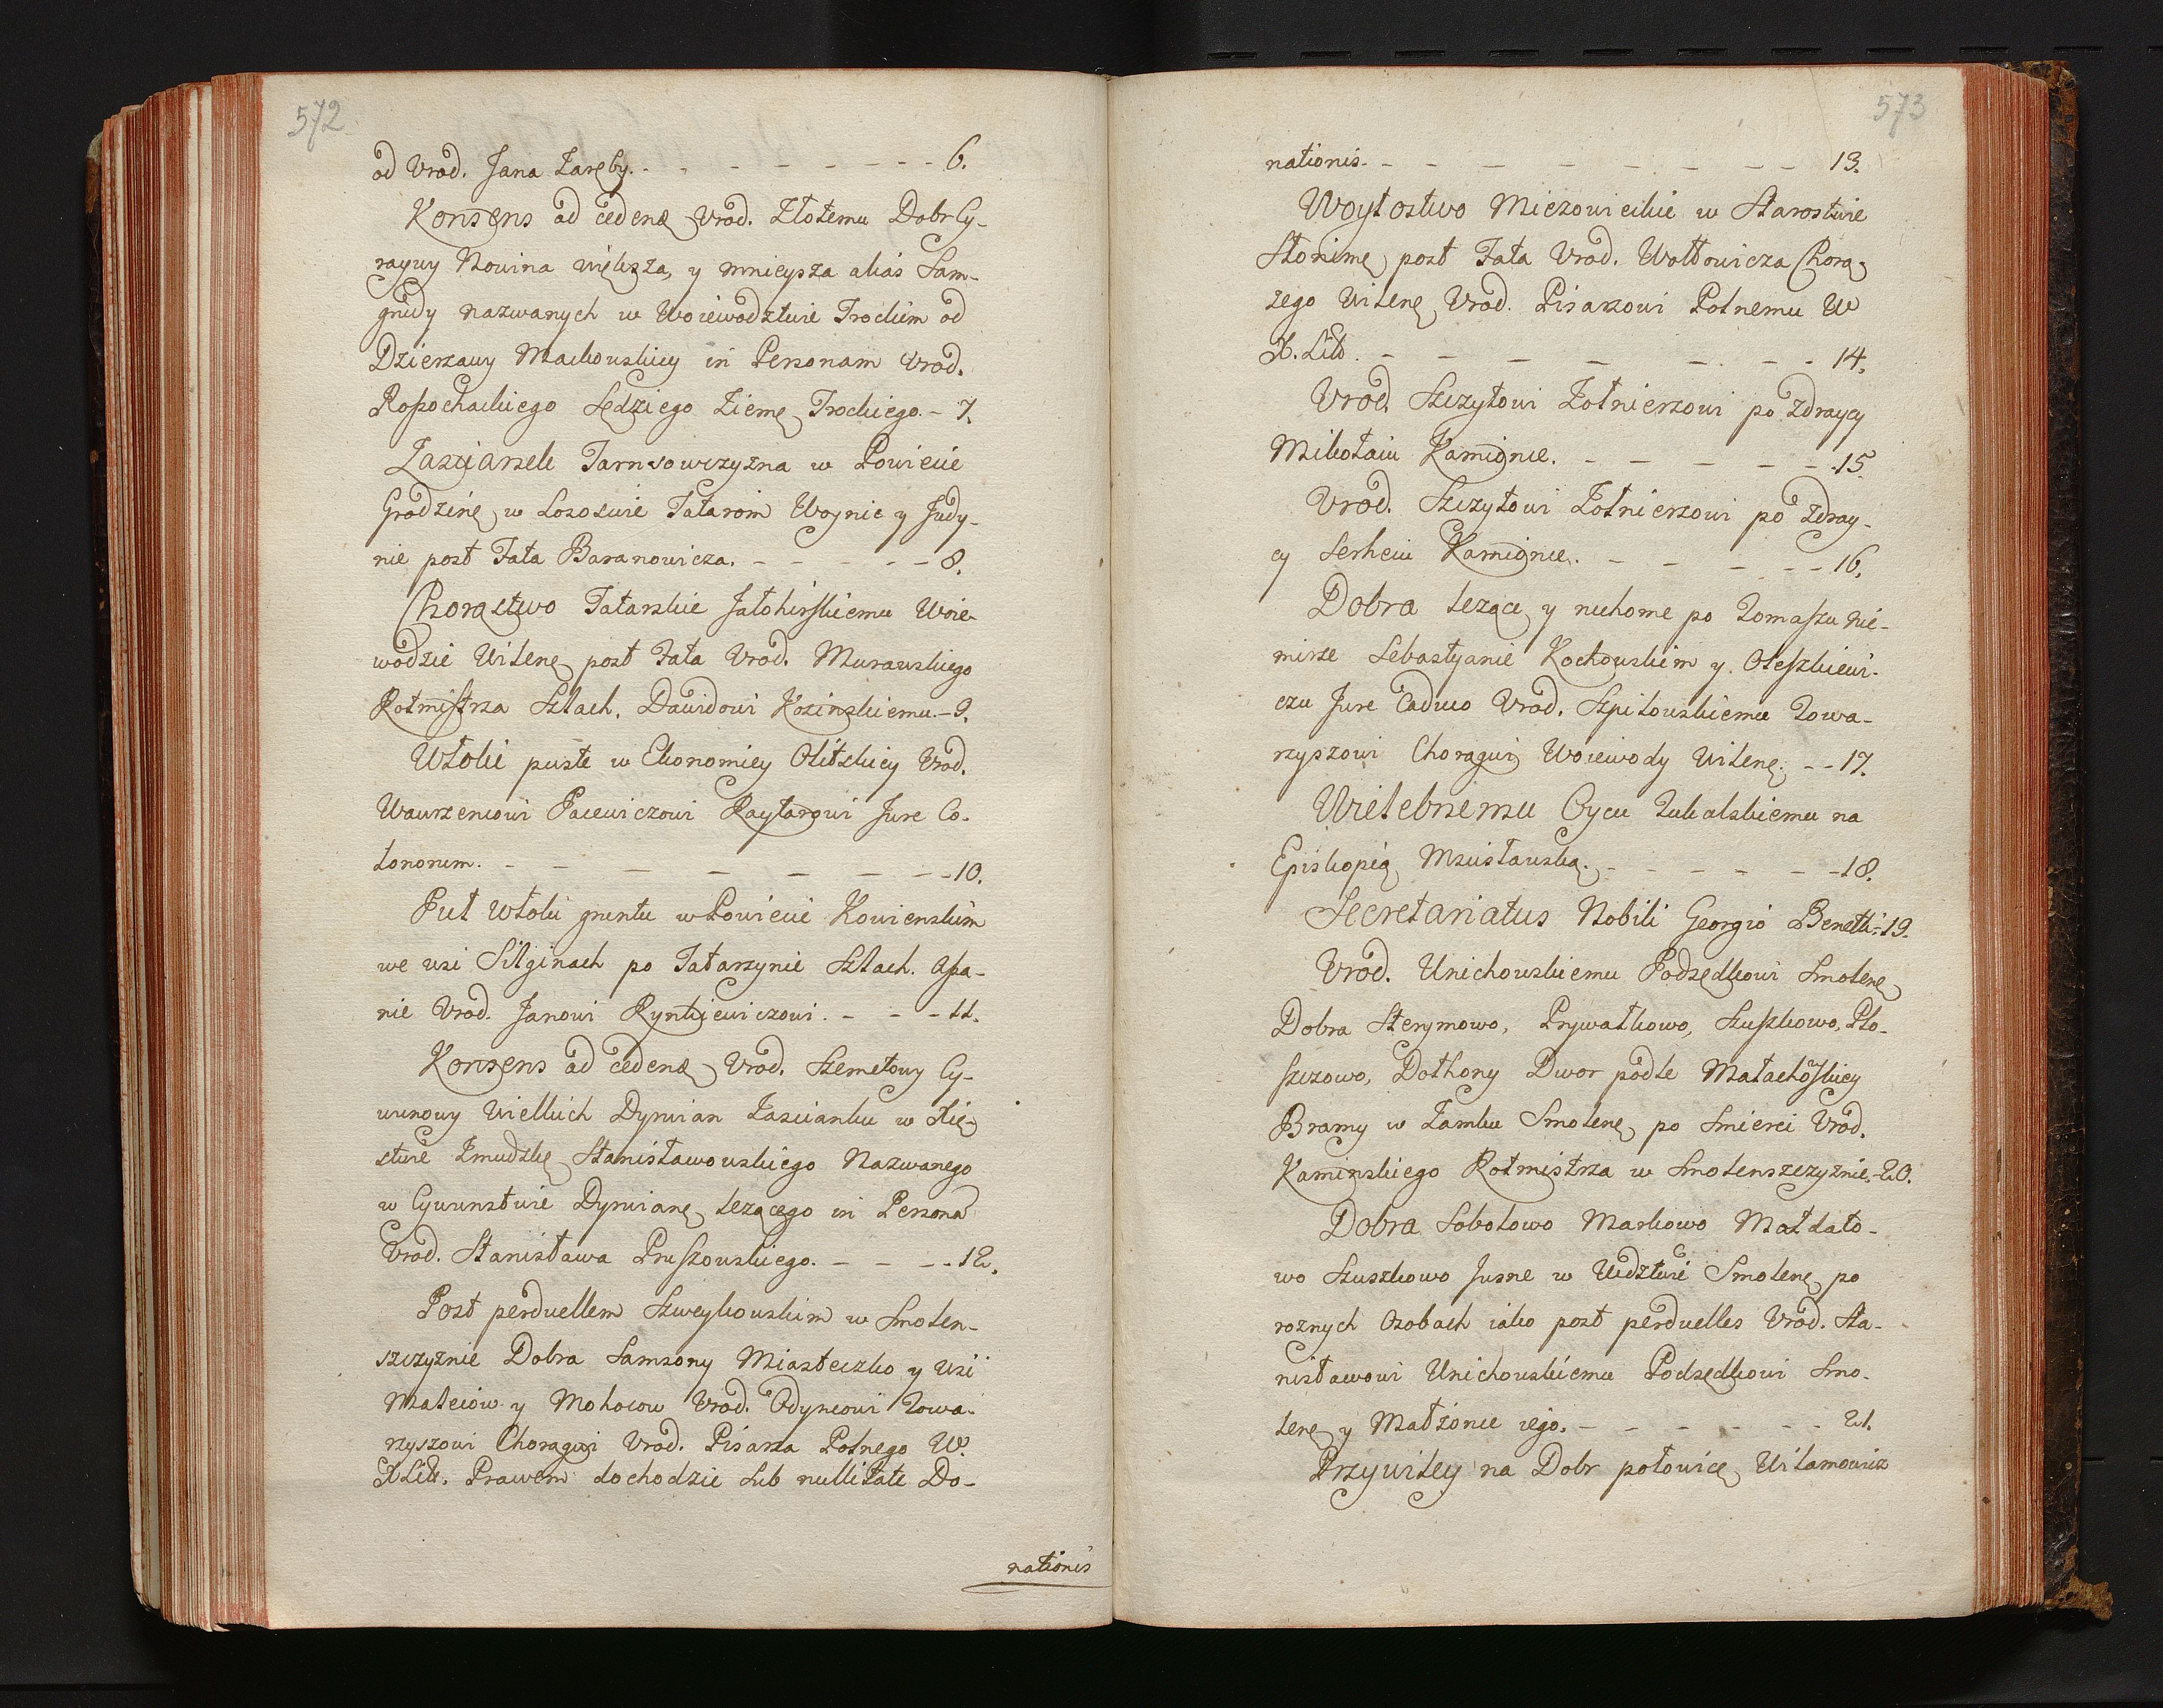 572
od Urod. Jana Zaręby. - - - - - - - - 6.
Konsens ad cedend Urod. Złotemu Dobr Cy-
raywy Nowina większa, y mnieysza alias Sam-
grudy nazwanych w Woiewodztwie Trockim od
Dzierzawy Mackowskiey in Personam Urod.
Rossochackiego Sędziego Ziemę Trockiego. - 7.
Zascianek Tarusowczyzna w Powiecie
Grodzinę w Sososwie Tatarom Woynie y Judy-
nie post Fata Baranowicza. - - - - - 8.
Chorąstwo Tatarskie Jałohirskiemu Woie-
wodzie Wilenę post Fata Urod. Murawskiego
Rotmistrza Szlach. Dawidowi Kozinskiemu. - 9.
Włoki puste w Ekonomiey Olitskiey Urod.
Wawrzencowi Pacewiczowi Raytarowi Jure Co-
lonorum. - - - - - - - - 10.
Puł Włoki gruntu w Powiecie Kowienskim
we wsi Silginach po Tatarzynie Szlach. Assa-
nie Urod. Janowi Ryntkiewiczowi. - - - 11.
Konsens ad cedend Urod. Szemetowy Cy-
wunowy Wielkich Dyrwian Zascianku w Xię-
stwie Zmudskę Stanisławowskiego Nazwanego
w Cywunstwie Dyrwianę lezącego in Persona
Urod. Stanisława Pruszowskiego. - - - - 12.
Post perduellem Szweykowskim w Smolen-
szczyznie Dobra Samsony Miasteczko y Wsi
Malciow y Mohocow Urod. Odyncowi Towa-
rzyszowi Chorągwi Urod. Pisarza Polnego W.
X Litt. Prawem dochodzic sub nullitate Do-
nationis
573
nationis. - - - - - - - - 13.
Woytostwo Miczowickie w Starostwie
Słonimę post Fata Urod. Wołłowicza Chorą-
zego Wilenę Urod. Pisarzowi Polnemu W
X. Litt. - - - - - - - 14.
Urod. Szczytowi Zołnierzowi po Zdraycy
Mikołaiu Kamionce. - - - - - - 15.
Urod. Szczytowi Zołnierzowi po Zdray-
cy Serheiu Kamionce. - - - - - 16.
Dobra lezące y ruchome po Tomaszu Nie-
mirze Sebastyanie Kochowskim y Oleszkiewi-
czu Jure Caduco Urod. Szpilowskiemu Towa-
rzyszowi Chorągwi Woiewody Wilenę. - - 17.
Wielebnemu Oycu Zukalskiemu na
Episkopią Mscisławską. - - - - - - 18.
Secretariatus Nobili Georgio Benetti - 19.
Urod. Unichowskiemu Podsędkowi Smolenę
Dobra Sterymowo, Prywatkowo, Szuszkowo, Plo-
szczowo, Dothony Dwor podle Małachowskiey
Bramy w Zamku Smolenę po Smierci Urod.
Kaminskiego Rotmistrza w Smolenszczyznie. - 20.
Dobra Sobolowo Markowo Małdało-
wo Szuszkowo Jusne w Wdztwie Smolenę po
roznych Osobach iako post perduelles Urod. Sta-
nisławowi Unichowskiemu Podsędkowi Smo-
lenę y Małzonce iego. - - - - - - - 21.
Przywiley na Dobr połowicę Wilamowicz